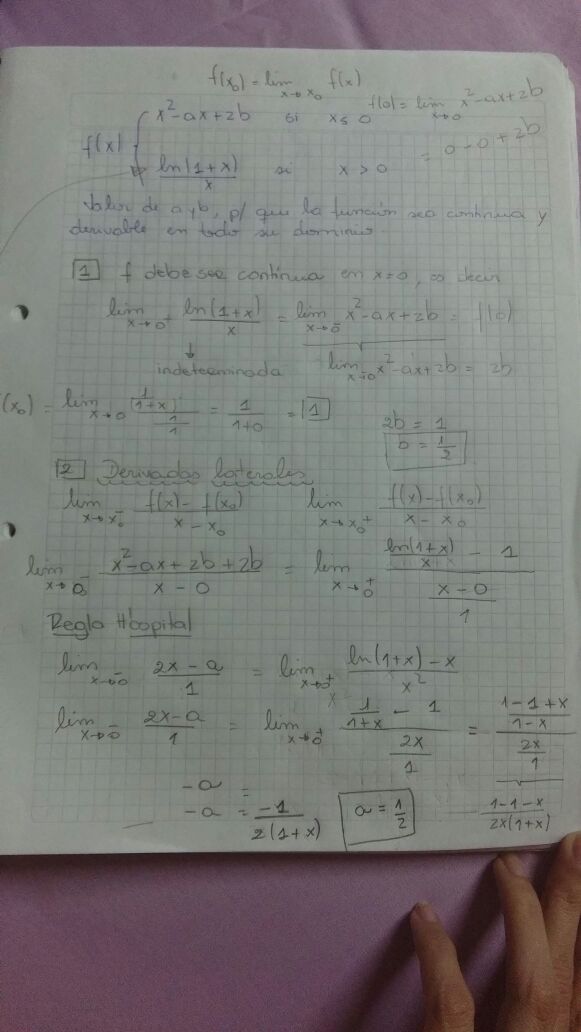 f(x₀) = lim x→x₀ f(x)
f(0) = lim x→0 x²-ax+2b
= 0-0+2b
f(x) { x²-ax+2b si x≤0
ln(1+x)/x si x>0
Valor de a y b, p/ que la función sea continua y
derivable en todo su dominio
1 f debe ser continua en x=0, es decir
lim x→0⁺ ln(1+x)/x = lim x→0⁻ x²-ax+2b = f(0)
↓
indeterminada lim x→0⁻ x²-ax+2b = 2b
(x₀) = lim x→0 (1/(1+x))/(1/1) = 1/(1+0) = 1
2b = 1
b = 1/2
2 Derivadas laterales
lim x→x₀⁻ (f(x)-f(x₀))/(x-x₀) lim x→x₀⁺ (f(x)-f(x₀))/(x-x₀)
lim x→0⁻ (x²-ax+2b+2b)/(x-0) = lim x→0⁺ (ln(1+x)/x - 1)/((x-0)/1)
Regla H'opital
lim x→0⁻ (2x-a)/1 = lim x→0⁺ (ln(1+x)-x)/x²
lim x→0⁻ (2x-a)/1 = lim x→0⁺ (1/(1+x) - 1)/(2x/1) = ((1-1+x)/(1-x))/(2x/1)
-a =
-a = -1/(2(1+x)) a = 1/2 (1-1-x)/(2x(1+x))